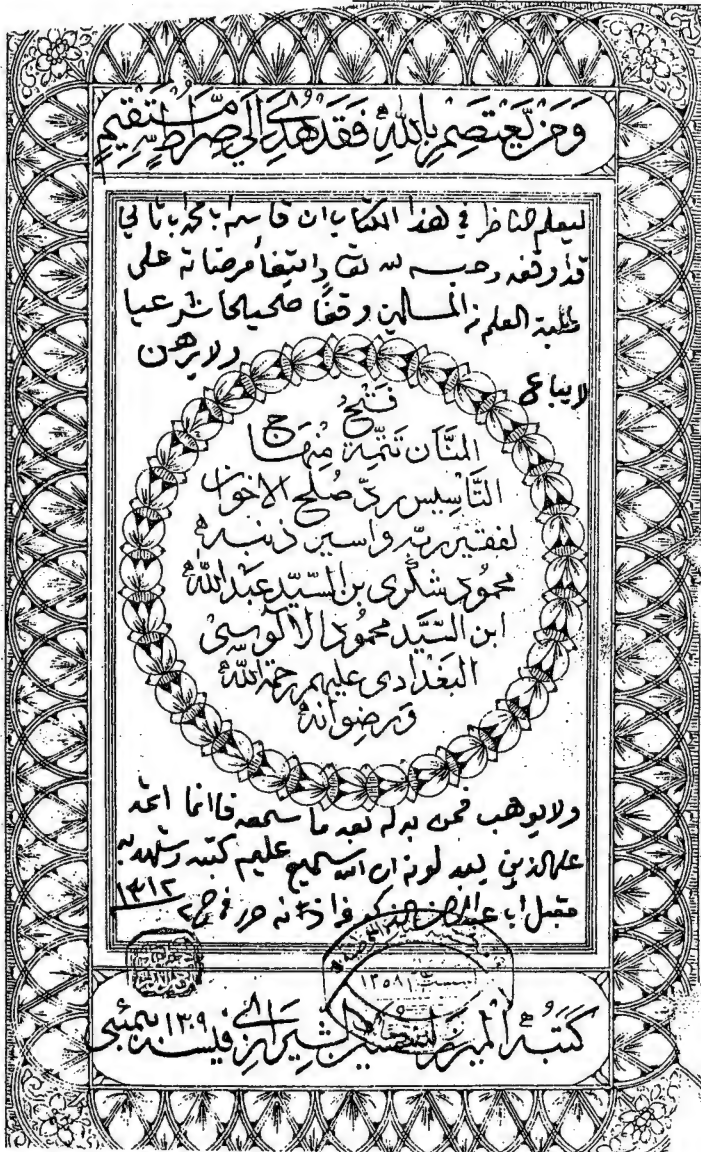 وَمَنْ يَعْتَصِمْ بِاللّٰهِ فَقَدْ هُدِيَ إِلَى صِرَاطٍ مُسْتَقِيمٍ
ليعلم الناظر في هذا الكتاب ان قاسم ابن محمد ابن ثاني
قد وقفه وحبسه لله تعا وابتغا مرضاته على
طلبة العلم من المسلمين وقفا صحيحا شرعيا
لا يباع ولا يرهن
فَتْحُ
المَنَّان تَتِمَّة مِنْهَاج
التَّأسِيس رد صُلح الاخوان
لفقير ربه واسير ذنبه
محمُود شكرى بن السَّيّد عَبدالله
ابن السَّيَّد محمُود الالوسى
البَغْدادى عليهم رحمة الله
وَرضوانه
ولا يوهب فمن بدله بعد ما سمعه فاانما اثمه
على الذين يبدلونه ان الله سميع عليم كتبه وشهد به
مقبل ابن عبدالرحمن الذكير حرر في ١٣١٢
١٣٥٨
كَتَبَهُ الميرزا الشيرازى فى سنة ١٣٠٩ بمبئى